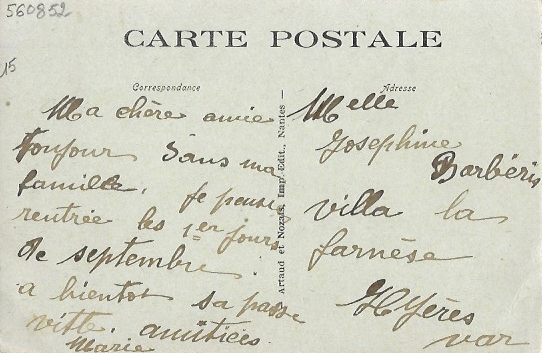 560852
CARTE POSTALE
15
Correspondance
Adresse
Ma chère amie
Toujour dans ma
famille. je pense
rentrée les 1er jours
de septembre.
a bientot sa passe
vitte. amitiées
Marie
Artaud et Nozais, Imp.-Edit., Nantes —
Melle
Josephine
Barbéris
villa la
farnèse
Hyères
var